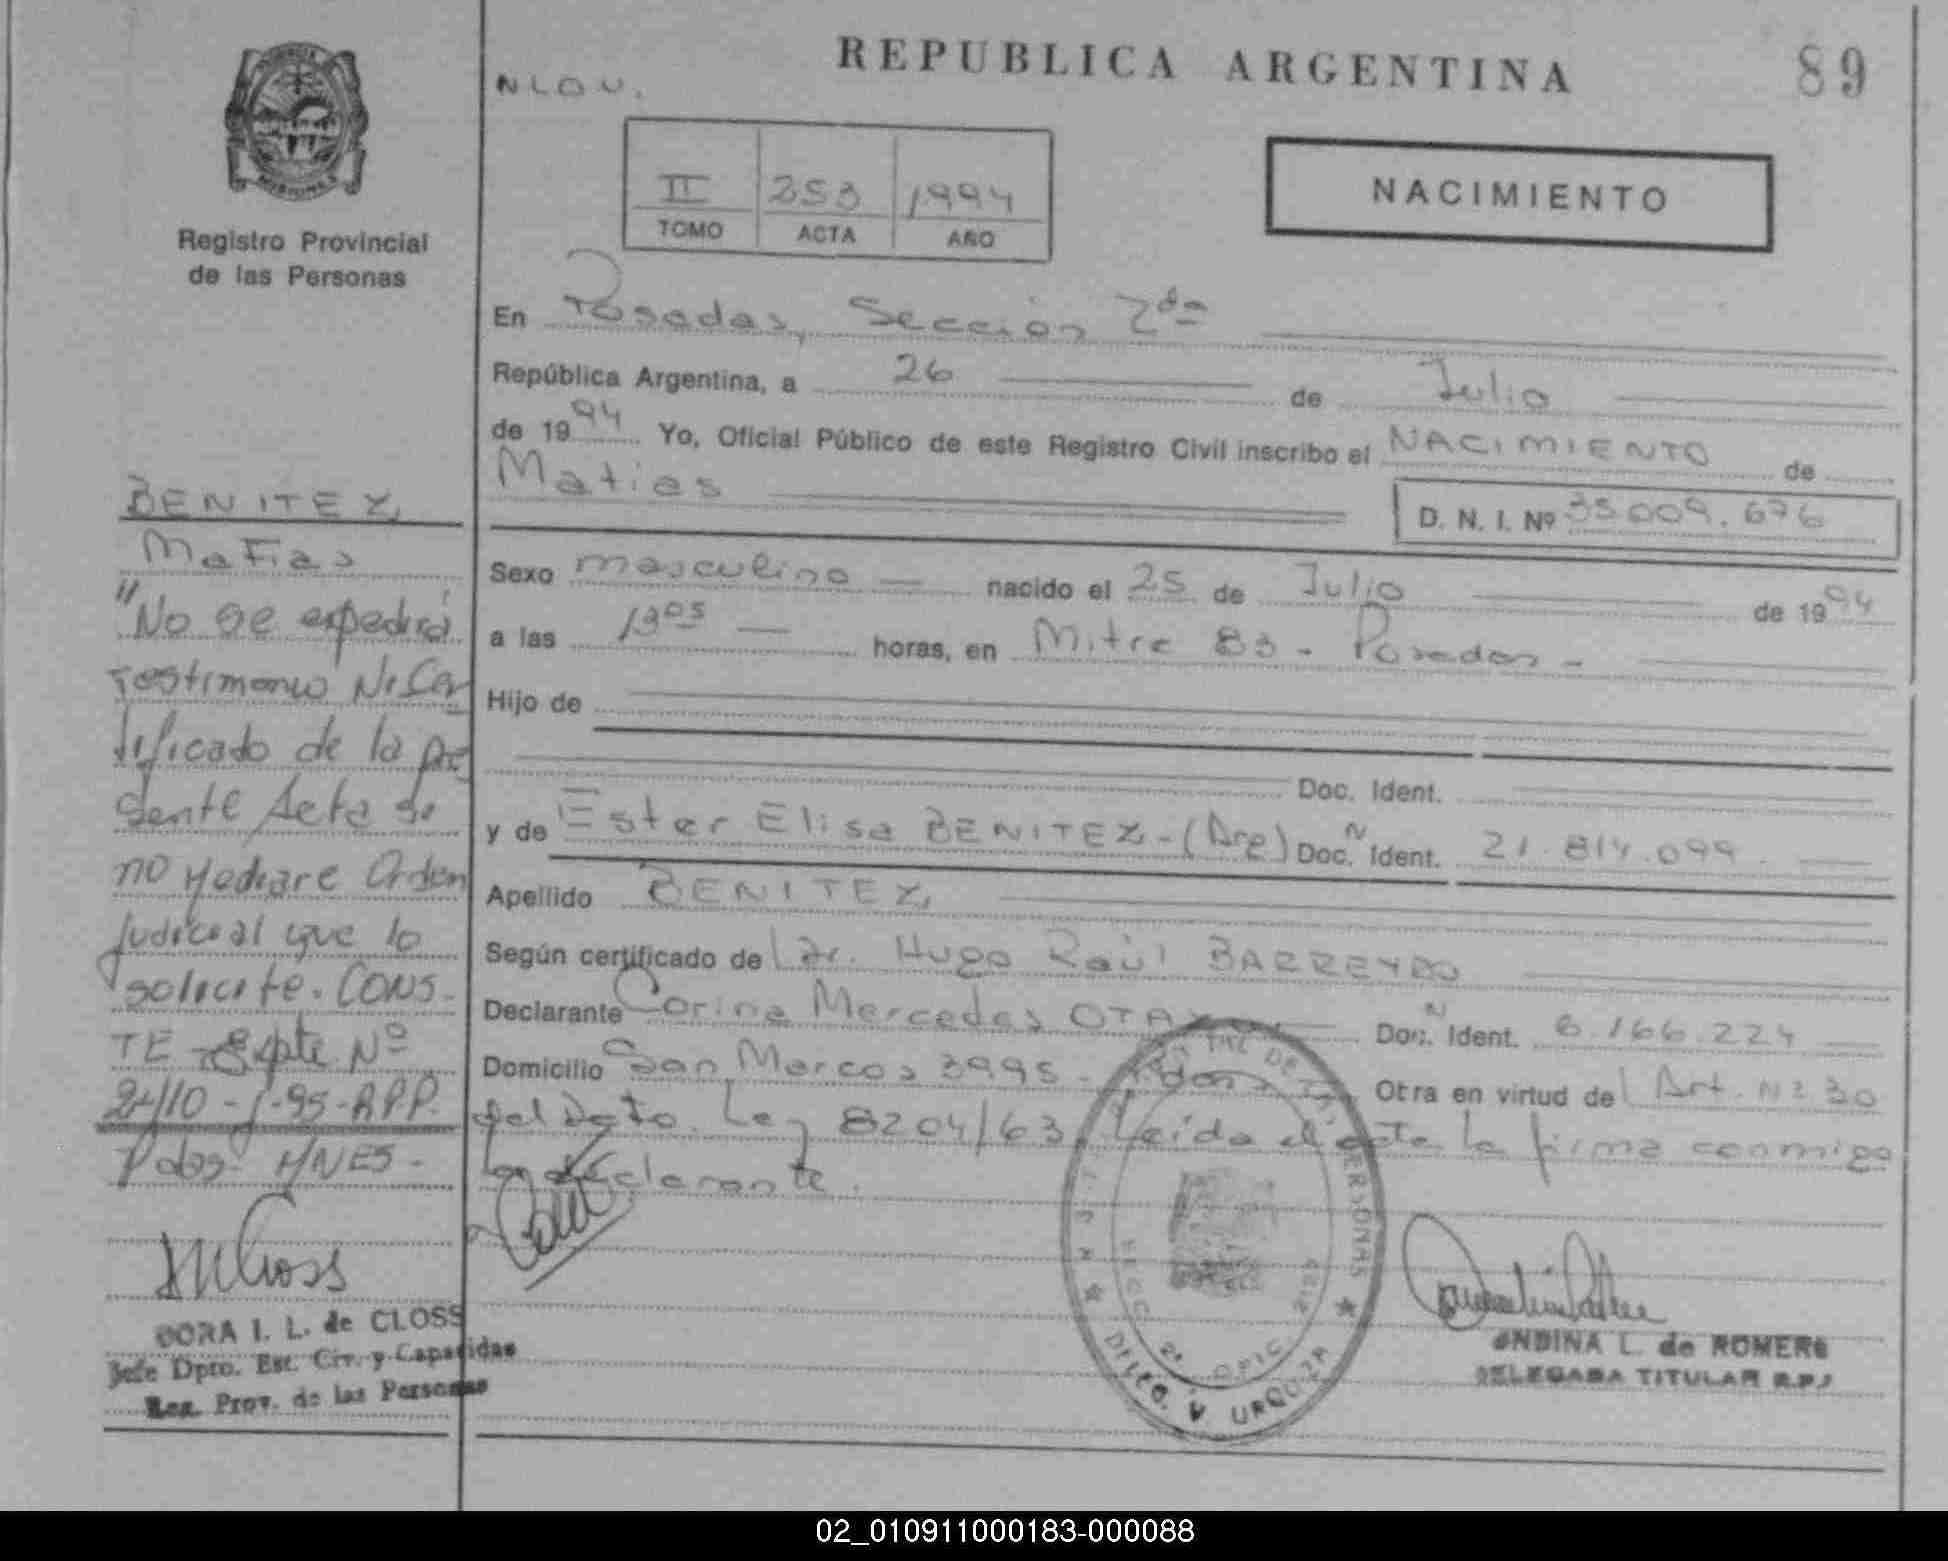 REPUBLICA ARGENTINA
89
NLOU.
II 253 1994
TOMO ACTA AÑO
NACIMIENTO
Registro Provincial
de las Personas
En Posadas, Sección 2da
República Argentina, a 26 de Julio
de 1994 Yo, Oficial Público de este Registro Civil inscribo el NACIMIENTO de
Matias D. N. I. Nº 35.009.676
Sexo masculino nacido el 25 de Julio de 1994
a las 1305 horas, en Mitre 83 - Posadas -
Hijo de
Doc. Ident.
y de Ester Elisa BENITEZ - (Arg) Doc. N Ident. 21.814.099.
Apellido BENITEZ,
Según certificado de Dr. Hugo Raúl BARREYRO
Declarante Corina Mercedes Doc. N Ident. 6.166.224
Domicilio San Marcos 3995 - Otra en virtud del Art. Nº 30
del Dcto. Ley 8204/63. Leída el acta la firma conmigo
la declarante.
BENITEZ,
Matias
"No se expedirá
Testimonio Ni Cer
tificado de la pre
sente Acta si
no mediare Orden
Judicial que lo
solicite. CONS-
TE - Expte Nº
-95-RPP.
Pdas.
DORA I. L. de CLOSS
Jefe Dpto. Est. Civ. y Capacidas
Reg. Prov. de las Personas
DE LAS PERSONAS
2º OFIC.
URQUIZA
ANDINA L. de ROMERO
DELEGADA TITULAR R.P.
02_010911000183-000088